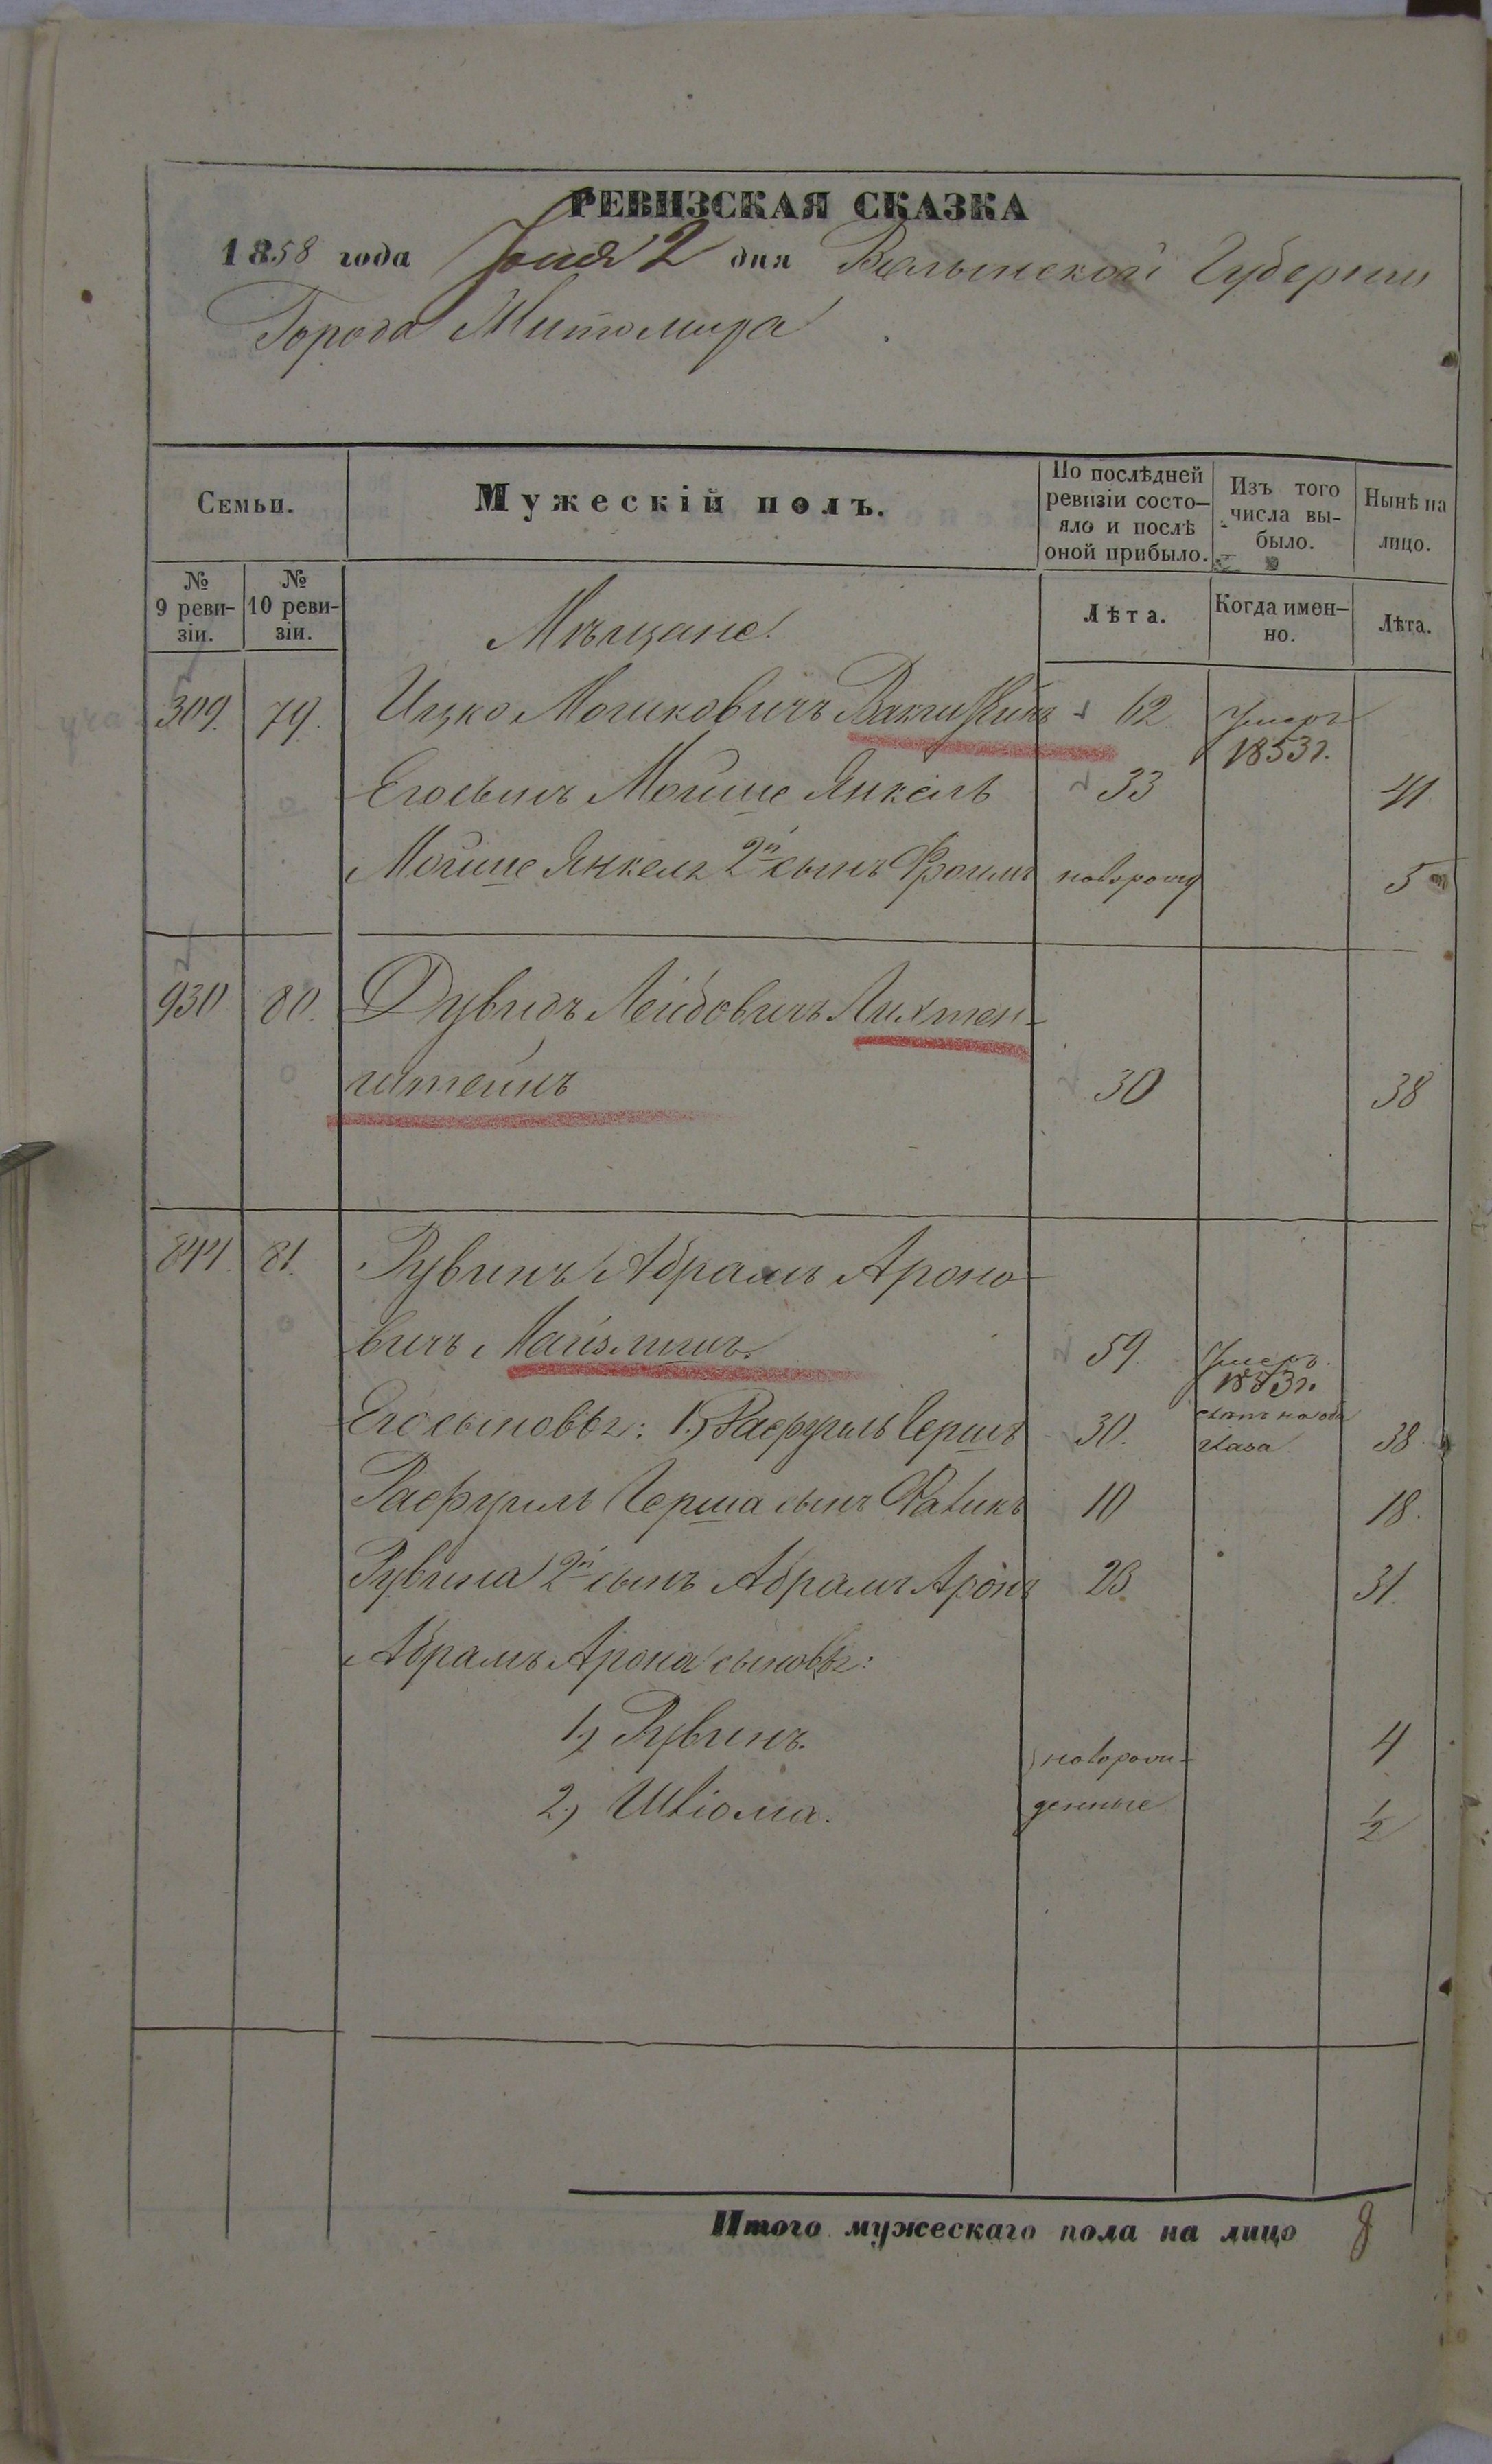 РЕВИЗСКАЯ СКАЗКА
1858 года Юня 2 дня Волынской Губернии
Города Житомира
Семьи.
Мужескій полъ.
По послѣдней ревизіи состо-
яло и послѣ
оной прибыло.
Изъ того
числа вы-
было.
Нынѣ на
лицо.
№
9 реви-
зіи.
№
10 реви-
зіи.
Лѣта.
Когда имен-
но.
Лѣта.
Мѣщане.
309. 79. Ицко Мошковичъ 62 Умеръ
1853 г.
Его сынъ Мойше Янкель 33 41
Мойше Янкеля 2й сынъ Фроимъ новорожд 5
930 80. Дувидъ Лейбовичъ Лихтен-
штейнъ 30 38
844. 81. Рувинъ Абрамъ Ароно-
вичъ Майзлишъ. 59. Умеръ.
1853 г.
Его сыновья: 1.) Расфуиль Гершъ 30. глаза 38.
Расфуиль Герша сынъ 10 18.
Рувина 2й сынъ Абрамъ Аронъ 23 31.
Абрамъ Арона сыновья:
1.) Рувинъ. новорож- 4
2.) Шліома. денные 1/2
Итого мужескаго пола на лицо 8